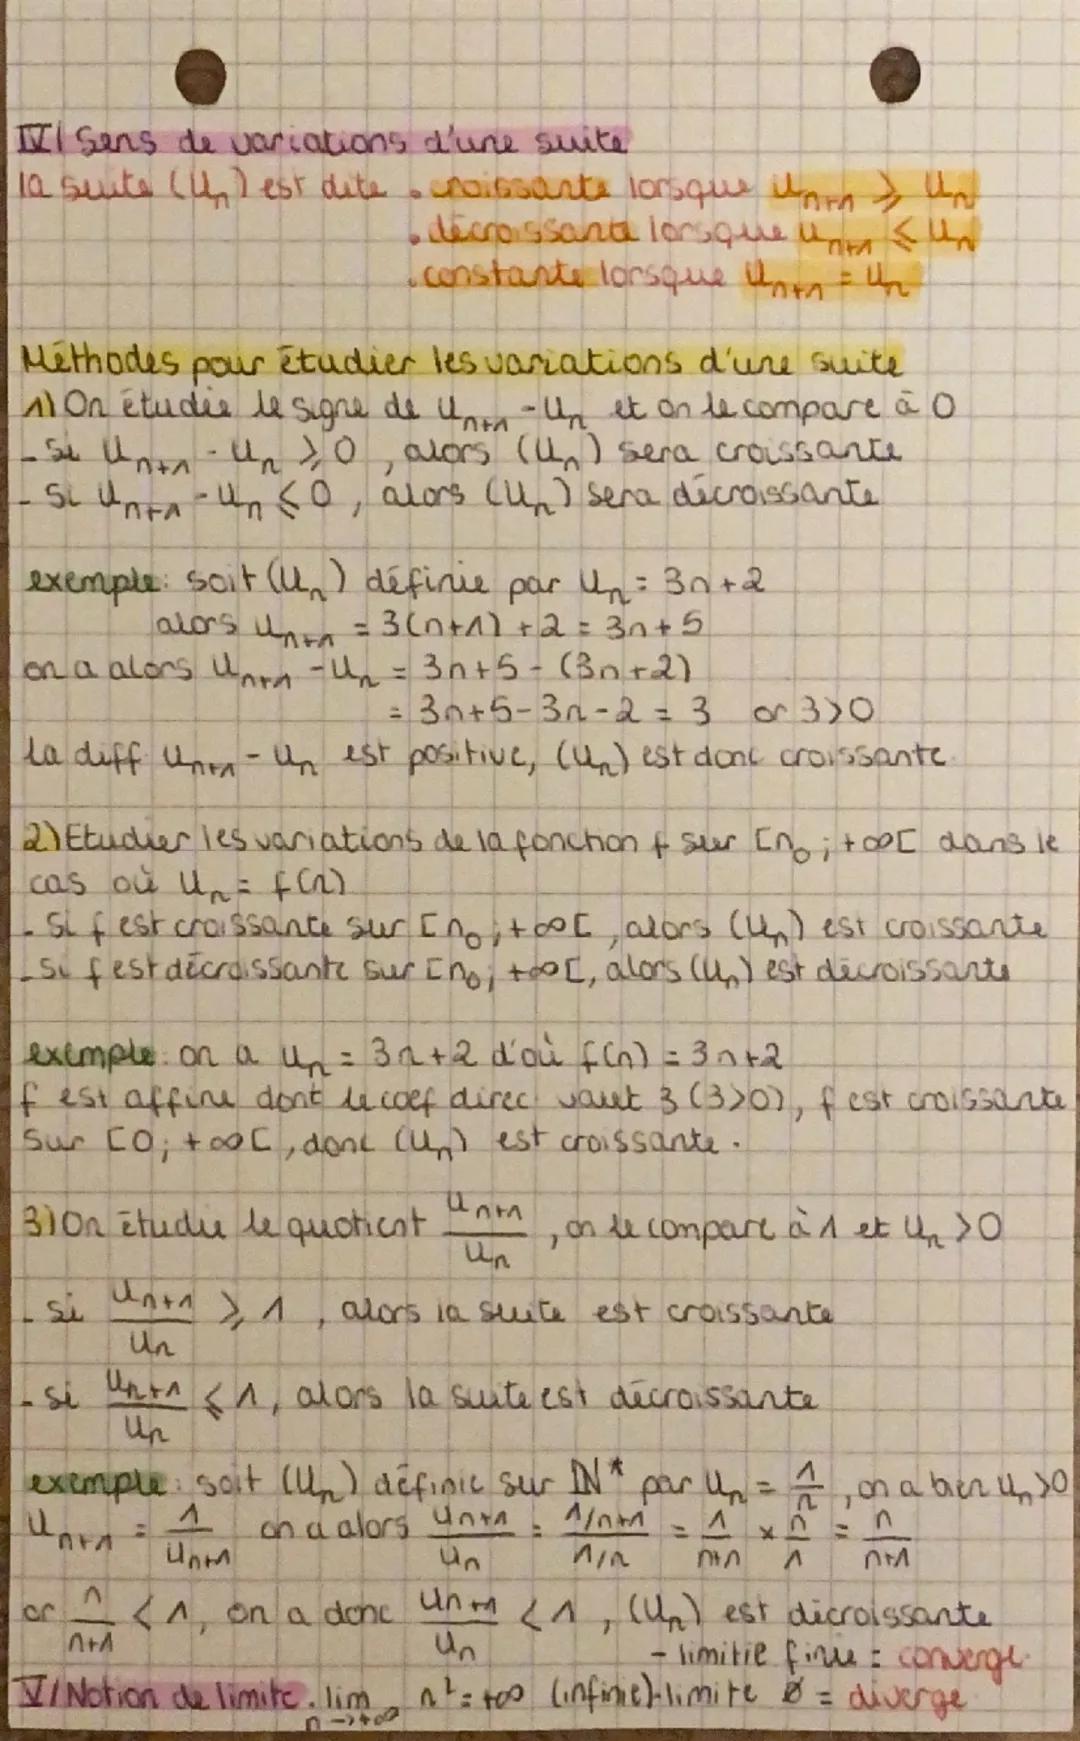 IV/ Sens de variations d'une suite
la suite (Un) est dite • croissante lorsque Un+1 ⩾ Un
• décroissante lorsque Un+1 ⩽ Un
• constante lorsque Un+1 = Un
Méthodes pour étudier les variations d'une suite
1) On étudie le signe de Un+1 - Un et on le compare à 0
- Si Un+1 - Un ⩾ 0, alors (Un) sera croissante
- Si Un+1 - Un ⩽ 0, alors (Un) sera décroissante
exemple: soit (Un) définie par Un = 3n+2
alors Un+1 = 3(n+1) + 2 = 3n+5
on a alors Un+1 - Un = 3n+5 - (3n+2)
= 3n+5-3n-2 = 3 or 3>0
la diff Un+1 - Un est positive, (Un) est donc croissante.
2) Etudier les variations de la fonction f sur [n0; +∞[ dans le
cas où Un = f(n)
- Si f est croissante sur [n0; +∞[, alors (Un) est croissante
- Si f est décroissante sur [n0; +∞[, alors (Un) est décroissante
exemple: on a Un = 3n+2 d'où f(n) = 3n+2
f est affine dont le coef direc vaut 3 (3>0), f est croissante
sur [0; +∞[, donc (Un) est croissante.
3) On étudie le quotient Un+1/Un, on le compare à 1 et Un > 0
- si Un+1/Un ⩾ 1, alors la suite est croissante
- si Un+1/Un ⩽ 1, alors la suite est décroissante
exemple: soit (Un) définie sur ℕ* par Un = 1/n, on a bien Un>0
Un+1 = 1/Un+1 on a alors Un+1/Un = (1/n+1)/(1/n) = 1/n+1 × n/1 = n/n+1
or n/n+1 < 1, on a donc Un+1/Un < 1, (Un) est décroissante
- limitie finie = converge
V/ Notion de limite. lim n→+∞ n² = +∞ (infinie) - limite ∅ = diverge